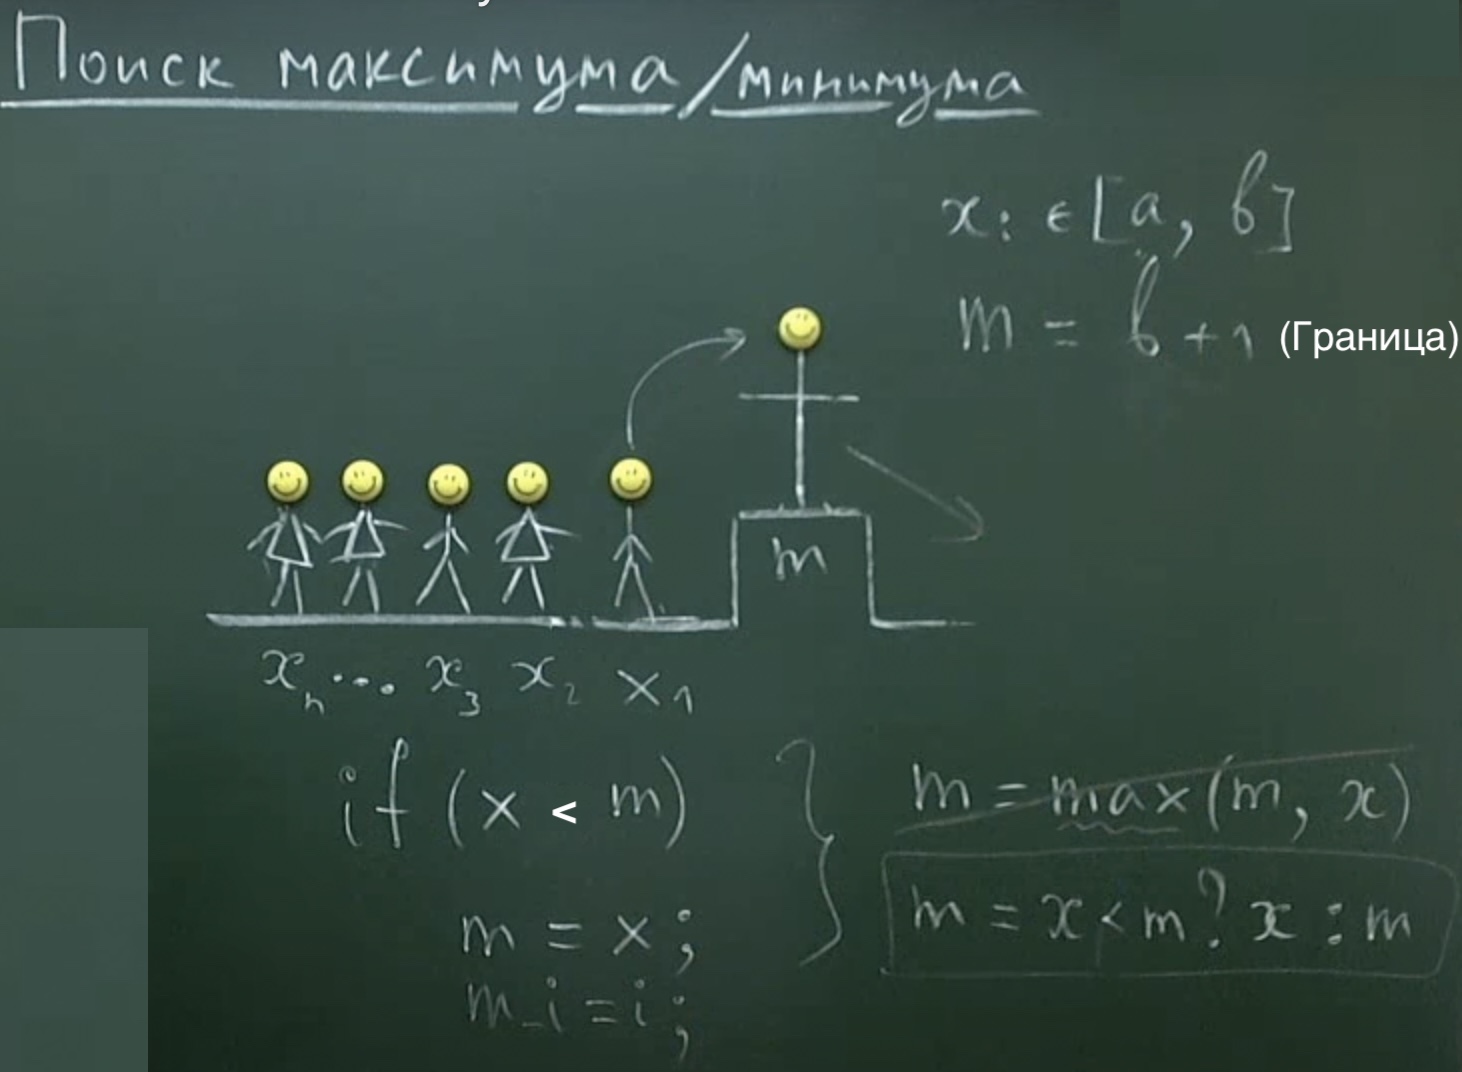 Поиск максимума/минимума
x: ∈ [a, b]
m = b + 1 (Граница)
m
xₙ ... x₃ x₂ x₁
if (x < m)
m = x;
m_i = i;
m = max(m, x)
m = x < m ? x : m